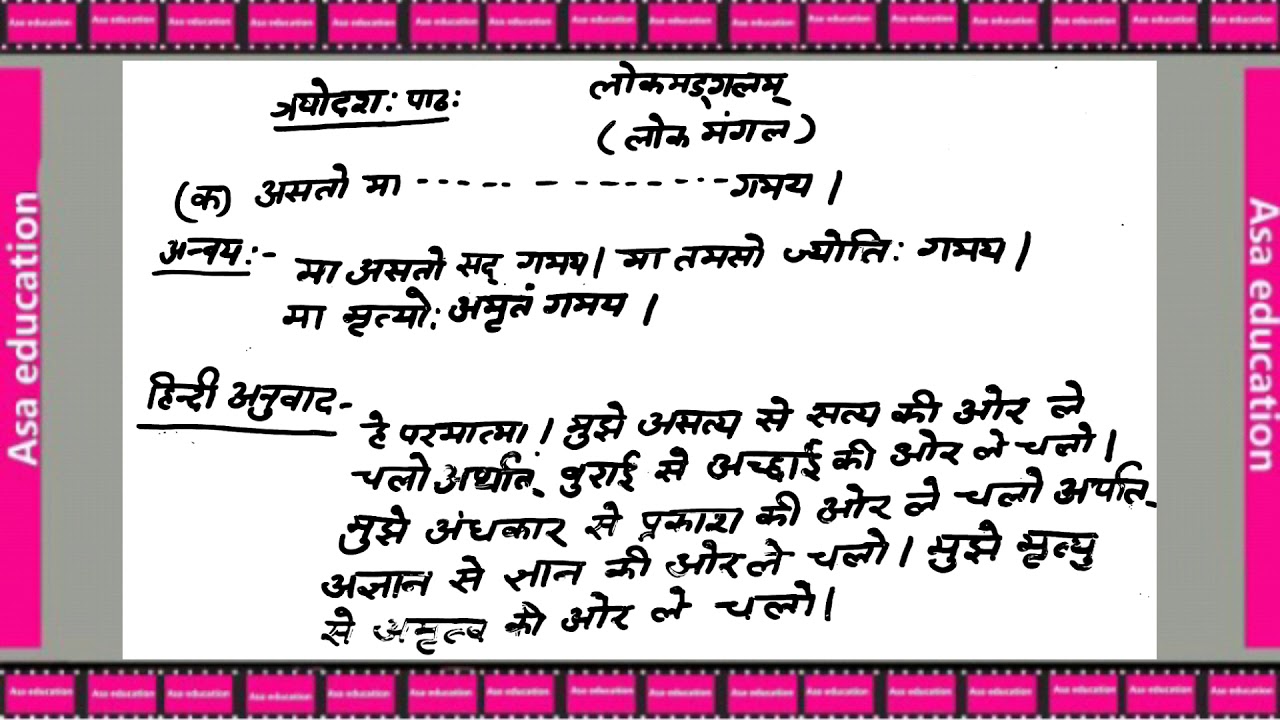 Asa education Asa education Asa education Asa education Asa education Asa education Asa education Asa education Asa education Asa education Asa education Asa education Asa education Asa education Asa education Asa education
त्रयोदश: पाठ: लोकमङ्गलम्
(लोक मंगल)
(क) असतो मा ------------- गमय।
अन्वय:- मा असतो सद् गमय। मा तमसो ज्योति: गमय।
मा मृत्यो: अमृतं गमय।
हिन्दी अनुवाद-
हे परमात्मा! मुझे असत्य से सत्य की ओर ले
चलो अर्थात् बुराई से अच्छाई की ओर ले चलो।
मुझे अंधकार से प्रकाश की ओर ले चलो अर्थात्
अज्ञान से ज्ञान की ओर ले चलो। मुझे मृत्यु
से अमृत्व की ओर ले चलो।
Asa education
Asa education
Asa education Asa education Asa education Asa education Asa education Asa education Asa education Asa education Asa education Asa education Asa education Asa education Asa education Asa education Asa education Asa education